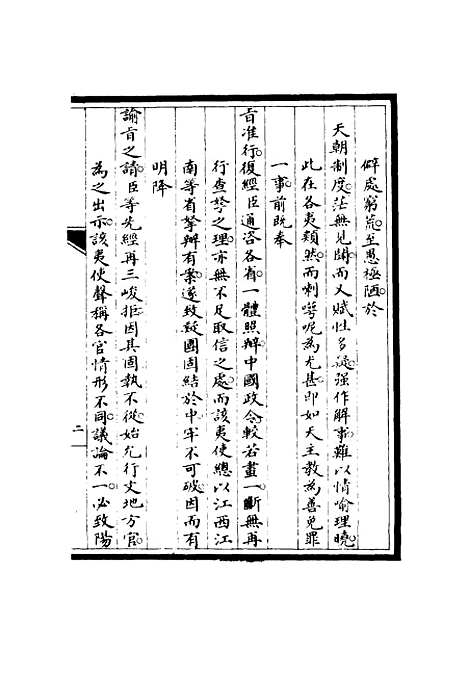 僻處窮荒至愚極陋於
天朝制度茫無見聞而又賦性多疑強作解事難以情喻理曉
此在各夷類然而喇嗹呢為尤甚即如天主教為善免罪
一事前既奉
旨准行復經臣通咨各省一體照辦中國政令較若畫一斷無再
行查禁之理亦無不足取信之處而該夷使總以江西江
南等省拏辦有案遂致疑團固結於中牢不可破因而有
明降
諭旨之請臣等先經再三峻拒因其固執不從始允行文地方官
為之出示該夷使聲稱各官情形不同議論不一必致陽
二